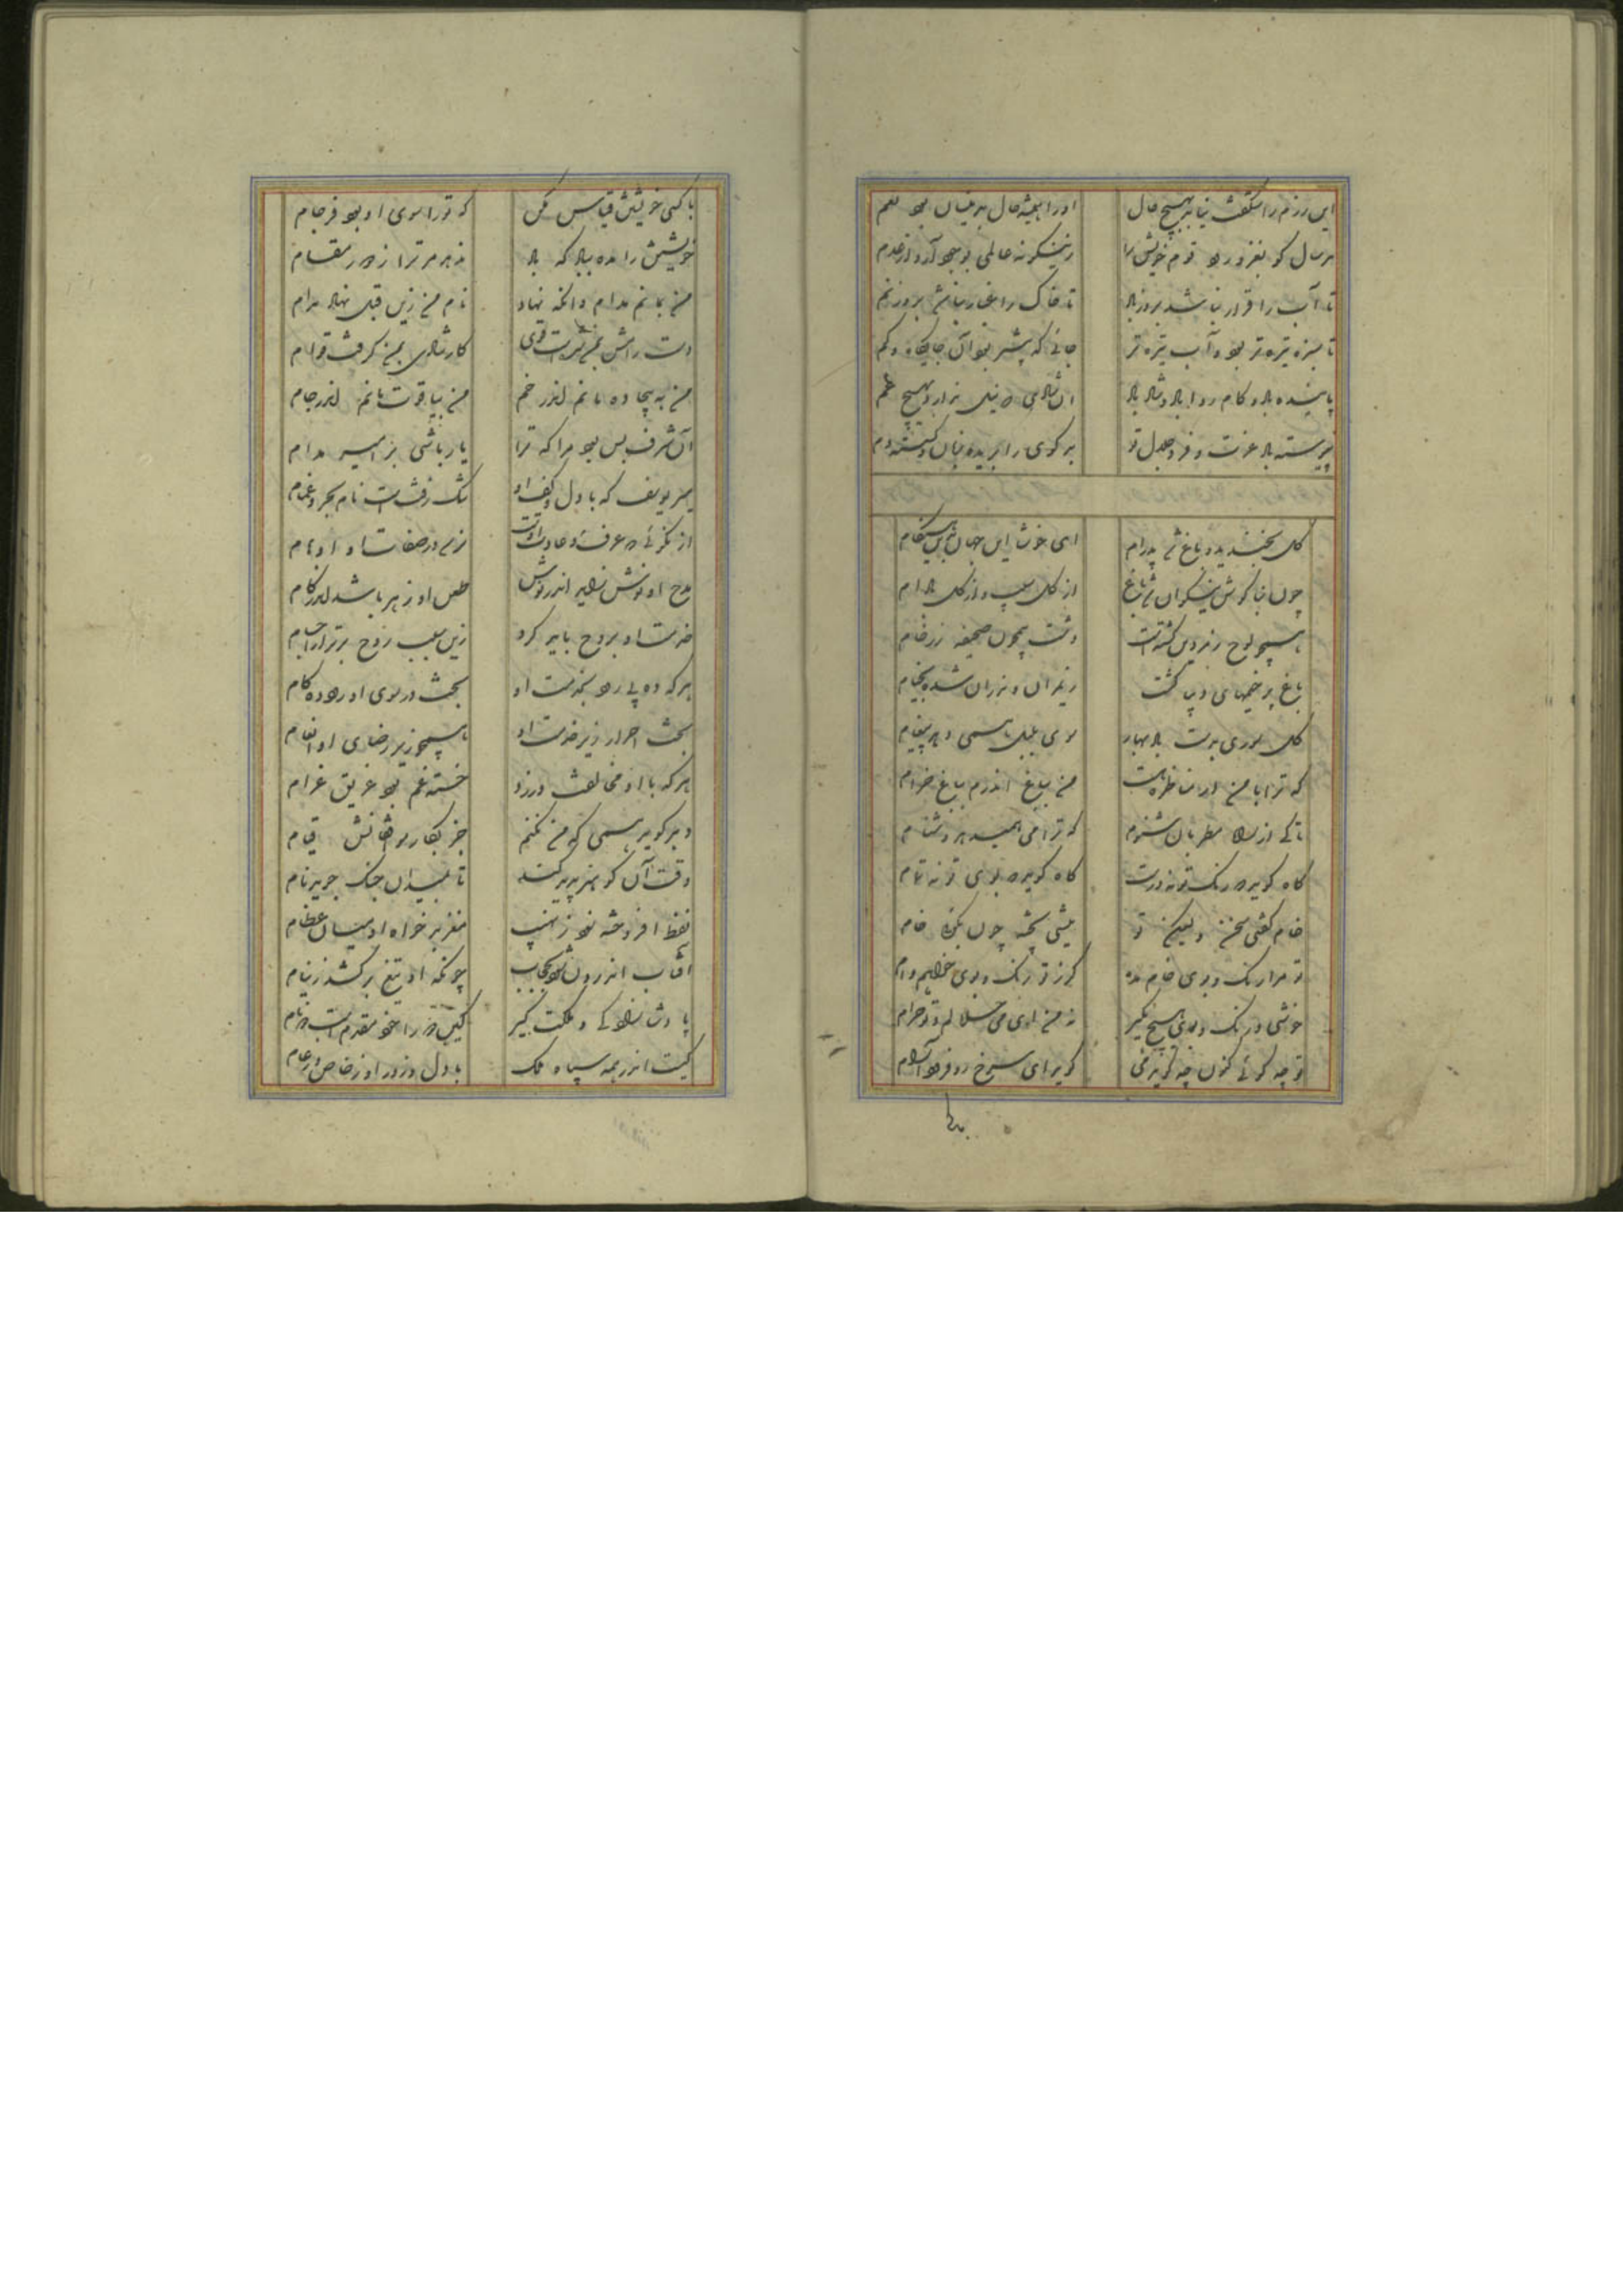 این رزم را شکفت نیاید بهیچ حال اورا همیشه حال بدینسان بود نعم
هرسال کو بغزو رود قوم خویش را زینکونه عالمی بوجود آرد از عدم
تا آب را قرار نباشد بروز باد تا خاک را غبار نباشد بروز نم
تا سبزه تیره تر بود و آب تیره تر جائی که بیشتر بود آن جایگاه و کم
پاینده باد و کام روا باد و شاد باد آن شادی ندارد بهیچ غم
پیوسته باد عزت و فر و جلال تو بدکوی را بریده زبان و
کل بخندید و باغ شد پدرام ای خوشا این جهان بدین هنکام
چون بناکوش نیکوان شد باغ از کل سیب و از کل بادام
همچو لوح زمردین کشتست دشت همچون صحیفه ز رخام
باغ پر خیمهای دیبا کشت زندوافان درون شده بخیام
کل سوری بدست باد بهار سوی باده همی دهد پیغام
که ترا با من ار مناظره ایست من بباغ اندرم بباغ خرام
تا کی از راه مطربان شنوم که ترا می همیدهد دشنام
کاه کوید که رنک تو نه درست کاه کوید که بوی تو نه تمام
خام کفتی سخن ولیکن تو نیستی پخته چون بکوئی خام
تو مرا رنک و بوی خام مده کر ز تو رنک و بوی خواهم وام
خوشی و رنک و بوی هیچ مکیر نه من ای می حلالم و تو حرام
تو چه کوئی کنون چه کوید می کوید ای سرخ رو فرو آرام
با کسی خویشتن قیاس مکن که ترا سوی او بود فرجام
خویشتن را مده بباد که باد ندهد مر ترا ز من آرام
من بمانم مدام و آنکه نهاد نام من زین قبل نهاد مدام
دست رامش بمن شدست قوی کار شادی بمن کرفت قوام
من به بیجاده مانم اندر خم من بیاقوت مانم اندر جام
آن شرف بس بود مرا که ترا یار باشی بزم میر مدام
میر یوسف که با دل و کف او تنک زفتست نام بحر و غمام
از نکوئی که عرف و عادت اوست نرسد در صفات او اوهام
مدح او نوش زاید اندر گوش طعن او زهر باشد اندر کام
خدمت او بروح باید کرد زین سبب روح برتر از اجسام
هرکه ده پی رود بخدمت او بخت زی سوی او رود ده کام
بخت احرار زیر خدمت او همچو زیر رضای او انعام
هرکه با او مخالفت ورزد خسته غم بود غریق غرام
وهر کوید همی که من نکنم جز بکار موافقانش قیام
وقت آن کو هنر پدید کند تا بمیدان جنک جوید نام
نفط افروخته شود ز نهیب مغز بدخواه او میان عظام
آفتاب اندرون شود بحجاب چونکه او تیغ برکشد ز نیام
پادشازاده و مملکت کیر کین و را خود مقدم است مقام
کیست اندر همه سپاه ملک با دل و زور او ز خاص و ز عام